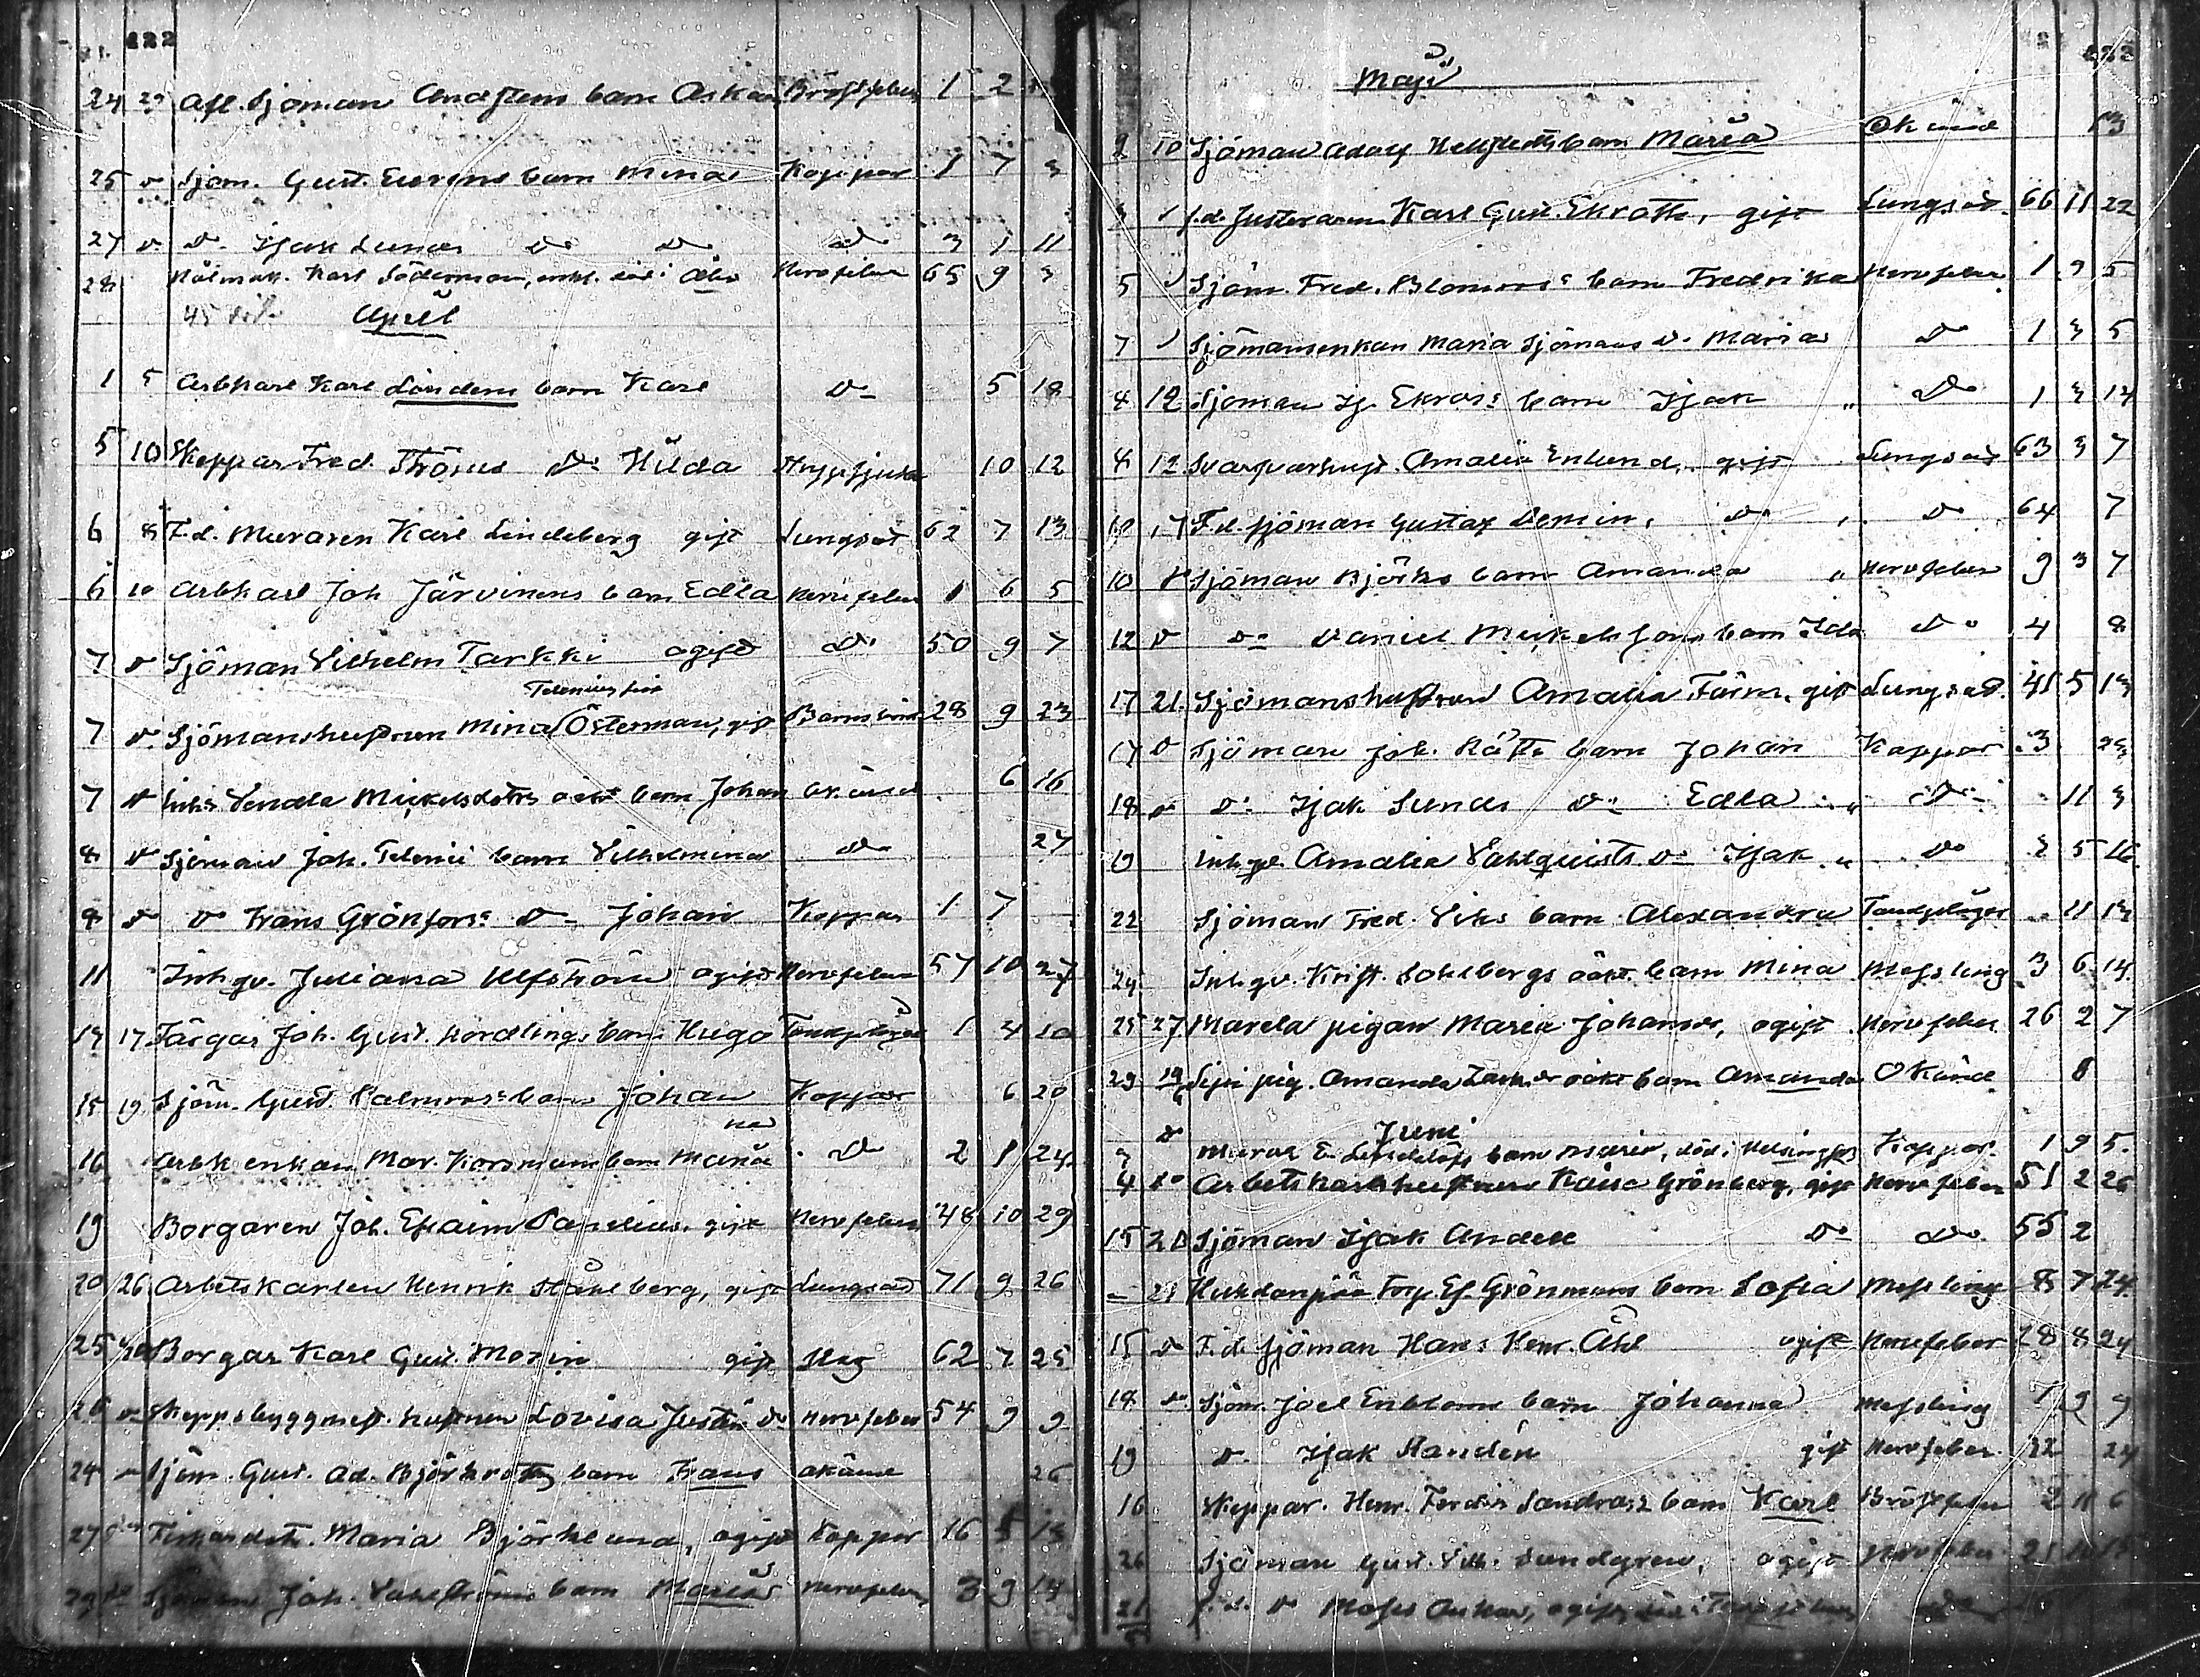 422
24 29 Afl. Sjöman Anderssens barn Oskar Bröstfeber 1 2
25 d Sjöm. Gust. Eurens barn Mina Koppor 1 7 3
27 d. d. Isak Lunds do do do 3 1 11
28 Karl Söderman, enkl. död i Åbo Nervfeber 65 9 3
45
April
1 5 Arbkarl Karl Lindens barn Karl do 5 18
5 10 Skeppar Fred. Thöyus do Hilda Strypsjuka 10 12
6 8 F.d. Muraren Karl Lindeberg gift Lungsot 62 7 13
6 10 Arbkarl Joh Järvinens barn Edla Nervfeber 1 6 5
7 d Sjöman Vilhelm Tarkki ogift do 50 9 7
Telenius fru
7 d. Sjömanshustrun Mina Österman, gift Barnsbörd 28 9 23
7 d Inhs Vendla Mickelsdotrs oäkt barn Johan Okänd 6 16
8 d Sjöman Joh. Telenii barn Vilhelmina do 27
8 d do Frans Grönfors: do Johan Koppor 1 7
11 Inhqv. Juliana Ulfström ogift Nervfeber 57 10 27
14 17 Färgar Joh. Gust. Nordlings barn Hugo Tandplågor 1 4 10
15 19 Sjöm. Gust. Palmroos: barn Johan Koppor 6 20
na
16 Arbk enkan Mar. Korsmans barn Maria do 2 1 24
19 Borgaren Joh. Efraim Panelius, gift Nervfeber 48 10 29
20 26 Arbetskarlen Henrik Ståhlberg, gift Lungsot 71 9 26
25 Borgar Karl Gust. Morin gift Slag 62 7 25
26 d Skeppsbyggmest. hustrun Lovisa Justin do Nervfeber 54 9 9
24 Sjöm. Gust. Ad. Björkroths barn Frans okänd 26
27 Maria Björklund, ogift Koppor 16 5 13
29 do Sjöman Joh. Vahlströms barn Maria Nervfeber 3 9 14
422
Maji
2 10 Sjöman Adolf Hellstedts barn Maria Okänd 13
f.d. Justeraren Karl Gust. Ekroth, gift Lungsot 66 11 22
5 Sjöm. Fred. Blomroos: barn Fredrika Nervfeber 1 9 5
7 Sjömansenkan Maria Sjömans d. Maria do 1 3 5
4 12 Sjöman Is. Ekroos: barn Isak do 1 3 14
4 12 Amalia Enlund, gift Lungsot 63 3 7
10 17 F.d. sjöman Gustaf Demin, do do 64 7
10 d Sjöman Björks barn Amanda Nervfeber 9 3 7
12 d do Daniel Mickelssons barn Ida do 4 8
17 21. Sjömanshustrun Amalia Färm, gift Lungsot 41 5 13
17 d Sjöman Joh. Råsts barn Johan Koppor 3 23
18 d do Isak Lunds do Edla do 11 3
19 Inhqv. Amalia Vahlquists do Isak do 2 5 16
22 Sjöman Fred. Viks barn Alexandra Tandplågor 11 13
24 Inhqv. Krist. Sohlbergs oäkt. barn Mina Messling 3 6 14
25 27 Marela pigan Maria Johansdr, ogift Nervfeber 26 2 7
29 pig. Amanda oäkt barn Amanda Okänd 8
Juni
d Murar E. Lindelöfs barn Maria, död i Helsingfors Koppor 1 9 5
4 do Arbetskarlshustrun Kaisa Grönberg, gift Nervfeber 51 2 26
15 20 Sjöman Isak Andell do do 55 2
- 21 Huhdanpää Torp Ef. Grönmans barn Sofia Messling 8 7 24
15 do F.d. sjöman Hans Henr. Åhl ogift Nervfeber 28 8 24
18 d. Sjöm. Joel Enbloms barn Johanna Messling 1 9 9
19 d. Isak Randén gift Nervfeber 32 24
16 Skeppar. Henr. Ferdin Sandroos: barn Karl Bröstfeber 2 11 6
26 Sjöman Gust. Vilh. Sundgren, ogift Nervfeber 21 11 15
21 f.d. do Moses Ankar, ogift, död i do